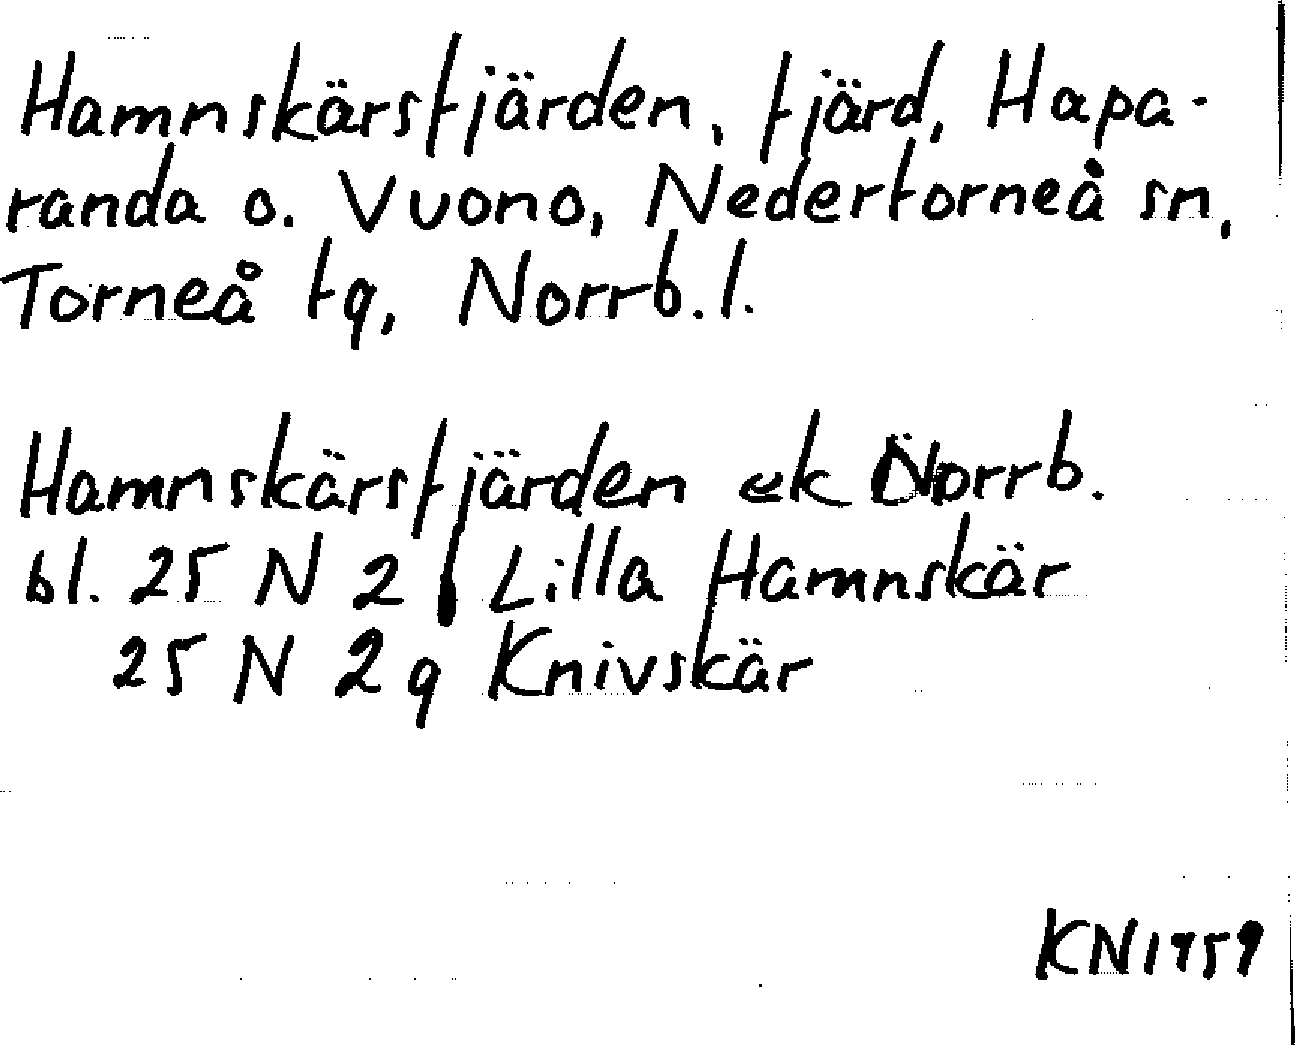 Hamnskärsfjärden, fjärd, Hapa-
randa o. Vuono, Nedertorneå sn,
Torneå tg, Norrb. l.
Hamnskärsfjärden ek Norrb.
bl. 25 N 2 f Lilla Hamnskär
25 N 2 g Knivskär
KN 1959